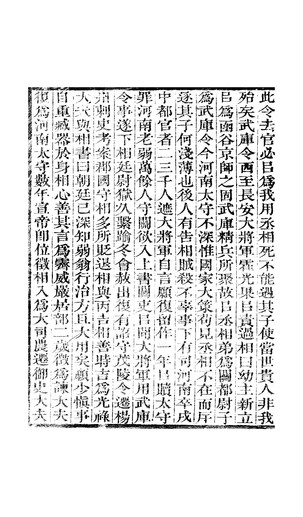 此令去官必㠯為我用丞相死不能遇其子使當世貴人非我
殆矣武庫令西至長安大將軍霍光果㠯責過相曰幼主新立
㠯為函谷京師之固武庫精兵所聚故㠯丞相弟為關都尉子
為武庫令今河南太守不深惟國家大策苟見丞相不在而斥
逐其子何淺薄也後人有告相賊殺不辜事下有司河南卒戍
中都官者二三千人遮大將軍自言願復留作 年㠯贖太守
罪河南老弱萬餘人守關欲入上書關吏㠯聞大將軍用武庫
令事遂下相廷尉獄久繫踰冬會赦出復有詔守茂陵令遷楊
州刺史考案郡國守相多所貶退相與丙吉相善時吉為光祿
大夫與相書曰朝廷已深知弱翁行治方且大用矣願少慎事
自重臧器於身相心善其言為霽威嚴居部二歲徵為諫大夫
復為河南太守數年宣帝即位徵相入為大司農遷御史大夫